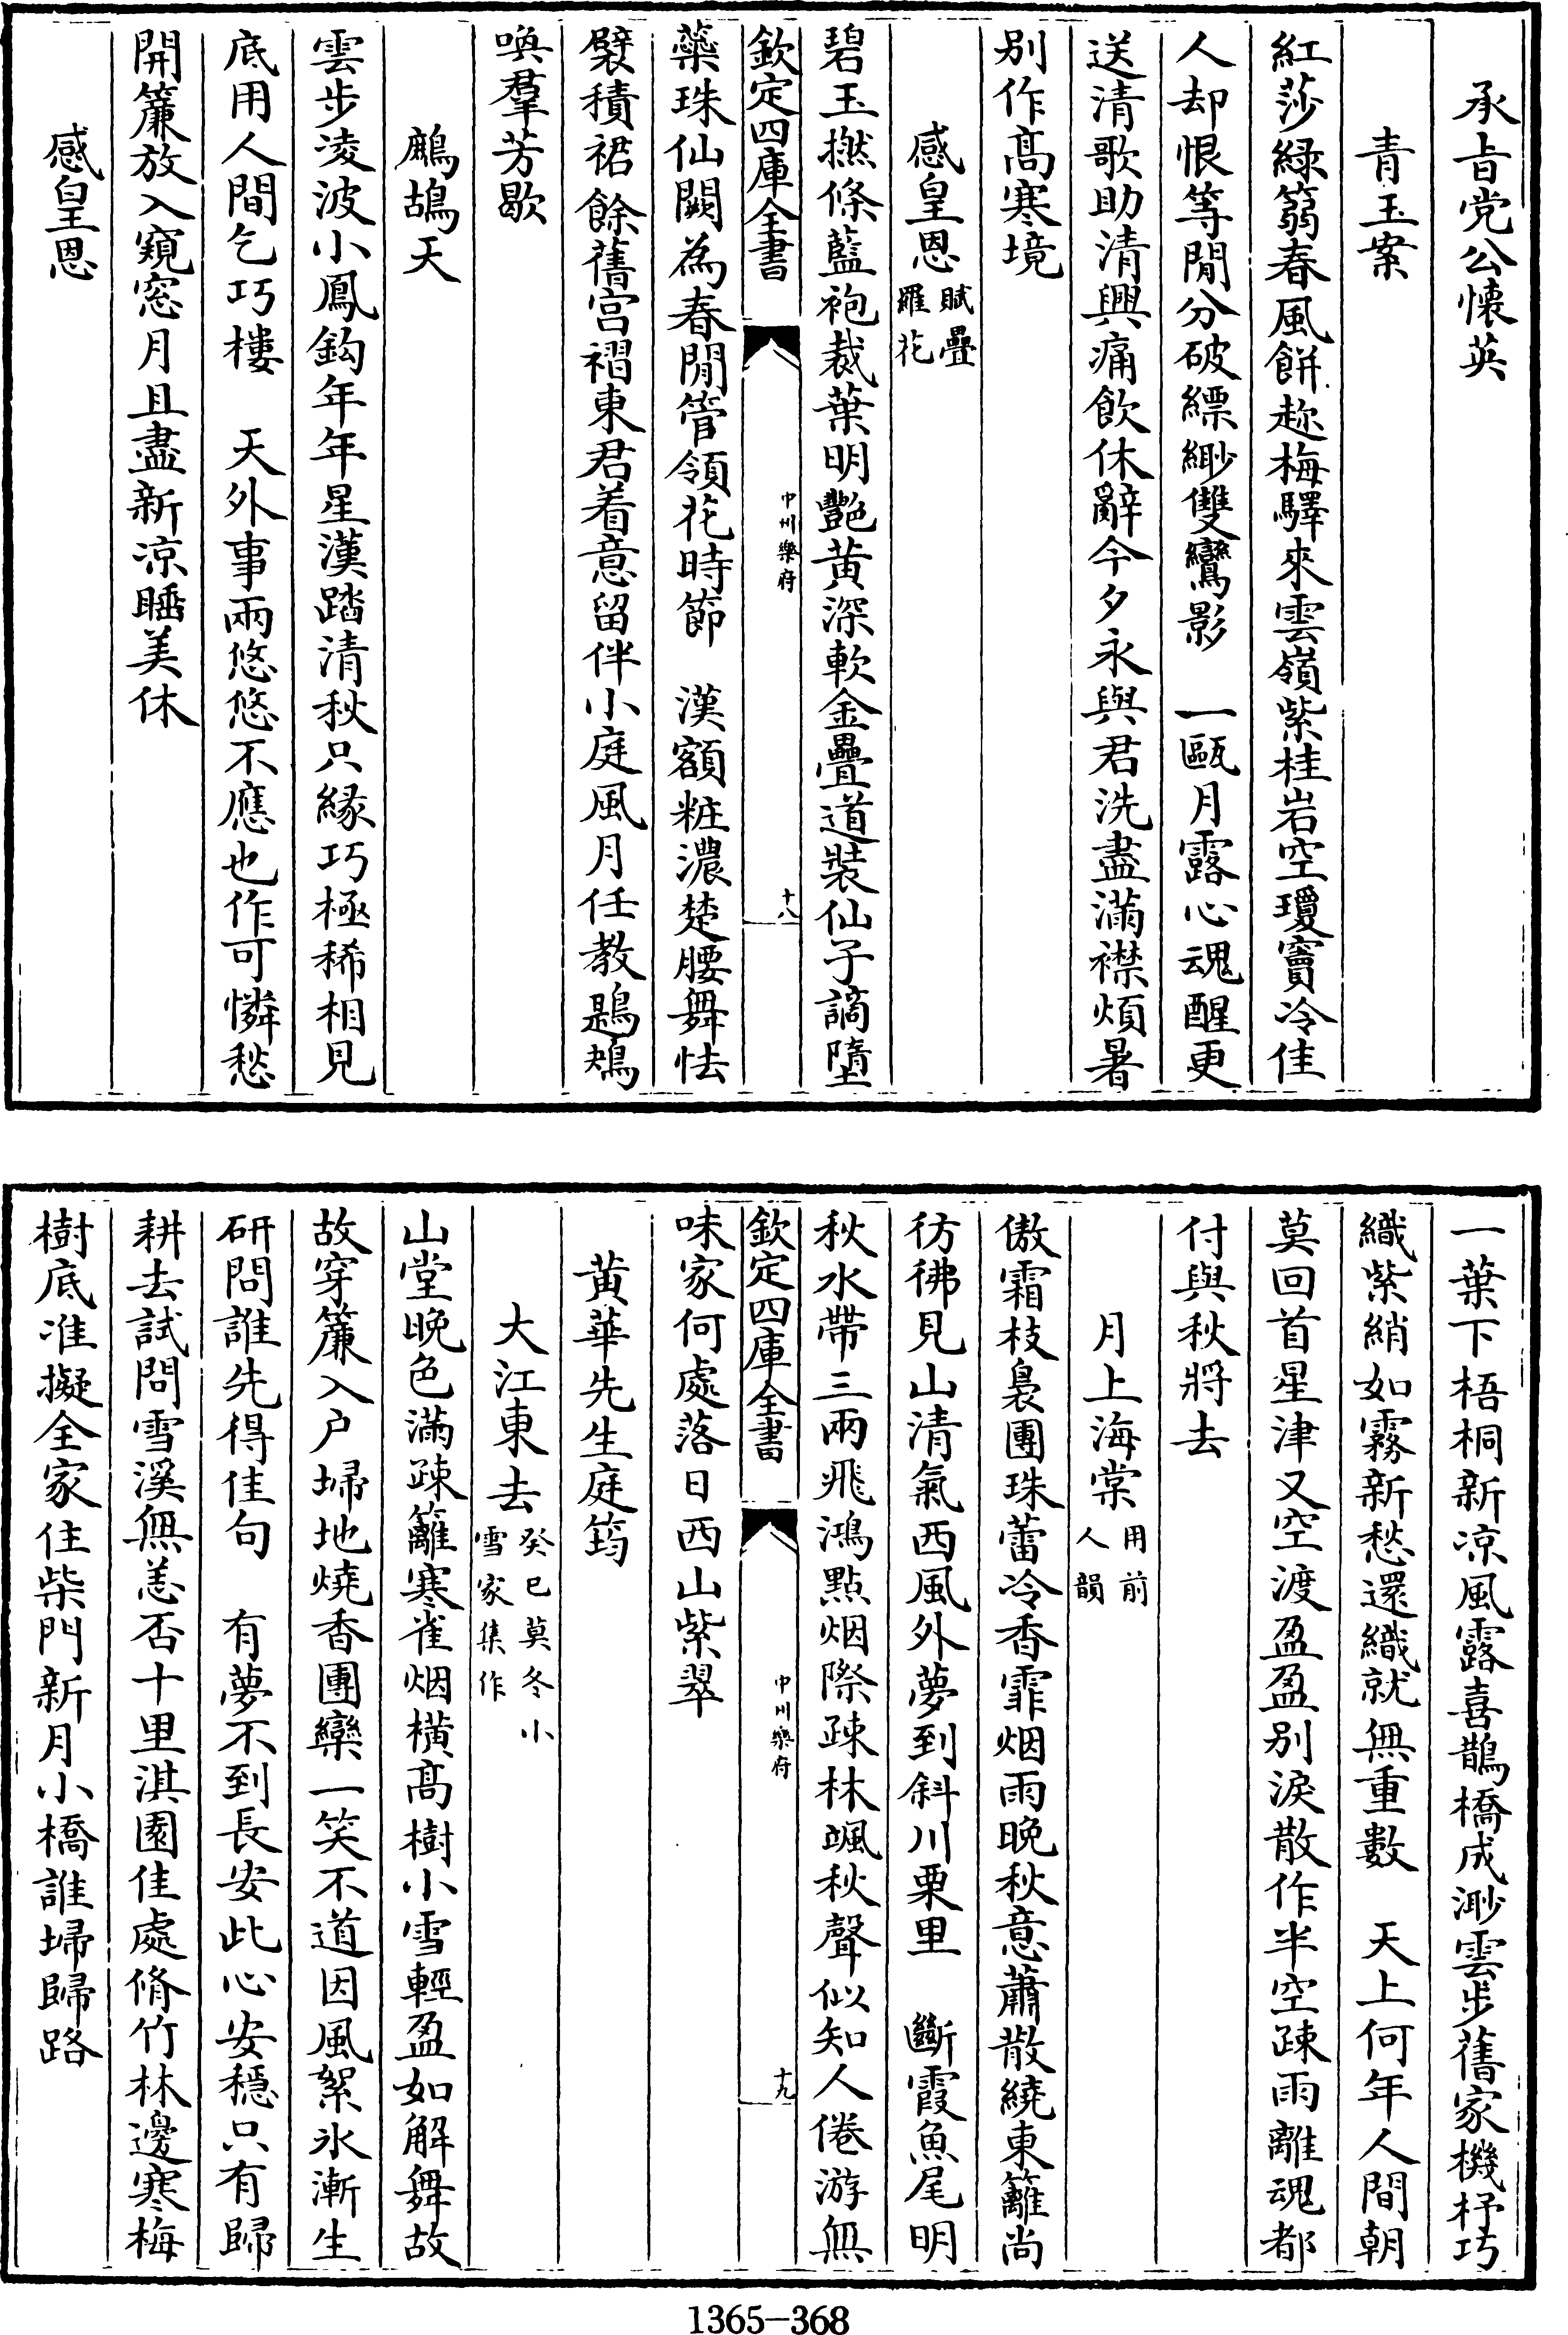 承㫖党公懐英
青玉案
紅莎緑篛春風餅趂梅驛來雲嶺紫桂岩空瓊竇冷佳
人却恨等閒分破縹緲雙鸞影　一甌月露心魂醒更
送清歌助清興痛飲休辭今夕永與君洗盡滿襟煩暑
别作髙寒境
感皇恩賦疊羅花
碧玉撚條藍袍裁葉明艷黄深軟金疊道装仙子謫墮
蘂珠仙闕為春閒管領花時節　漢額粧濃楚腰舞怯
襞積裙餘舊宫褶東君着意留伴小庭風月任教鶗鴂
喚羣芳歇
鷓鴣天
雲步凌波小鳳鈎年年星漢踏清秋只縁巧極稀相見
底用人間乞巧樓　天外事兩悠悠不應也作可憐愁
開簾放入窺窓月且盡新凉睡美休
感皇恩
欽定四庫全書
中州樂府
十八
一葉下梧桐新凉風露喜鵲橋成渺雲步舊家機杼巧
織紫綃如霧新愁還織就無重數　天上何年人間朝
莫回首星津又空渡盈盈别淚散作半空疎雨離魂都
付與秋將去
月上海棠用前人韻
傲霜枝裊團珠蕾冷香霏烟雨晚秋意蕭散繞東籬尚
彷彿見山清氣西風外夢到斜川栗里　斷霞魚尾明
秋水帶三兩飛鴻點烟際疎林颯秋聲似知人倦游無
味家何處落日西山紫翠
黄華先生庭筠
大江東去癸巳莫冬小雪家集作
山堂晚色滿疎籬寒雀烟橫髙樹小雪輕盈如解舞故
故穿簾入户埽地燒香團欒一笑不道因風絮氷漸生
研問誰先得佳句　有夢不到長安此心安穩只有歸
耕去試問雪溪無恙否十里淇園佳處脩竹林邊寒梅
樹底准擬全家住柴門新月小橋誰埽歸路
欽定四庫全書
中州樂府
十九
1365-368